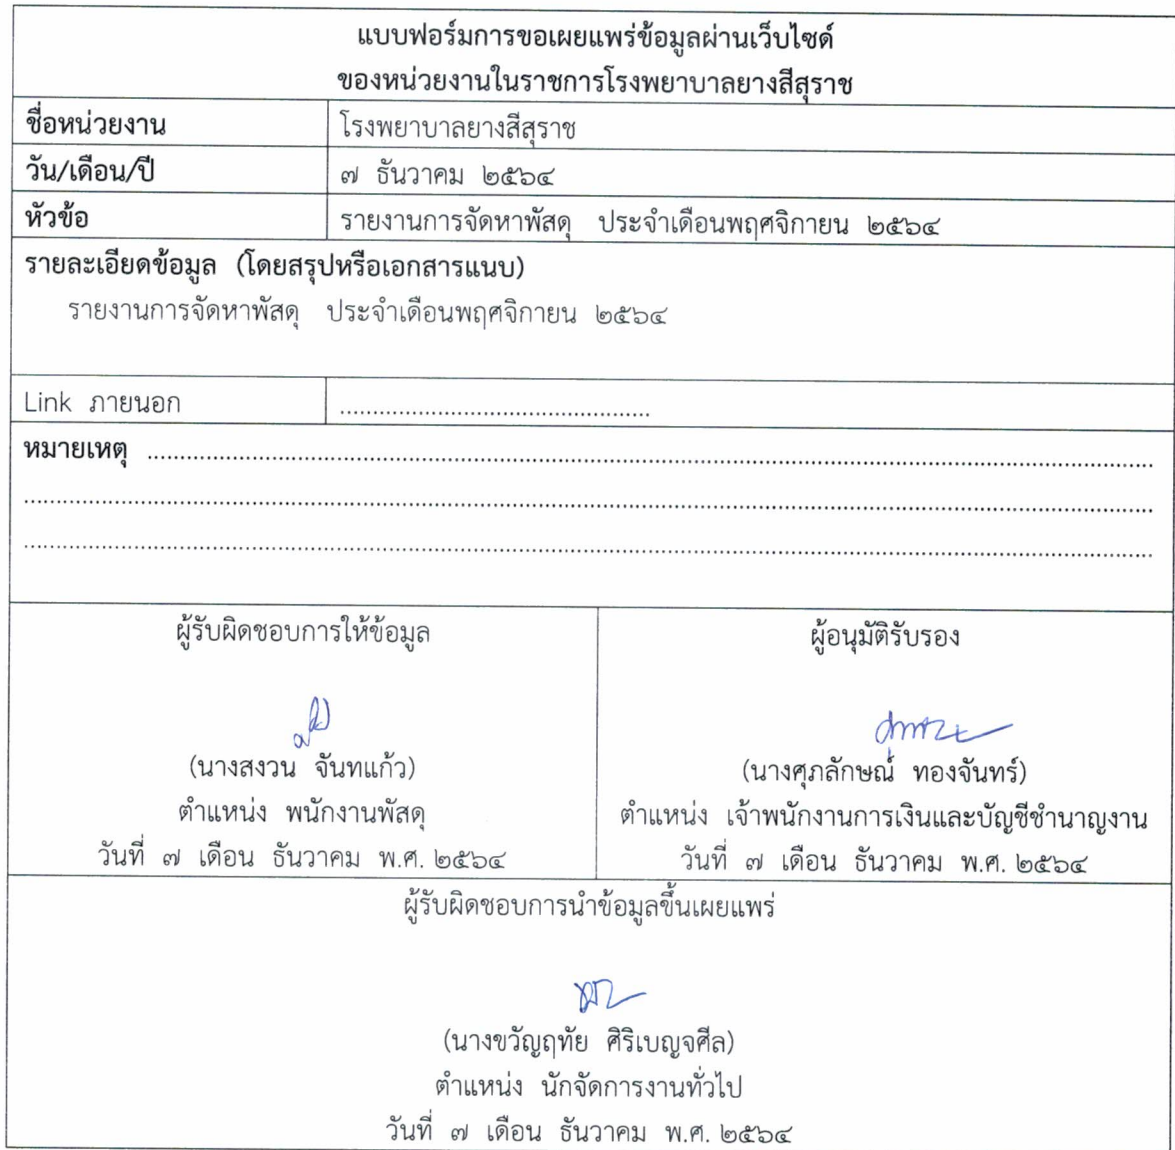 แบบฟอร์มการขอเผยแพร่ข้อมูลผ่านเว็บไซด์
ของหน่วยงานในราชการโรงพยาบาลยางสีสุราช
ชื่อหน่วยงาน โรงพยาบาลยางสีสุราช
วัน/เดือน/ปี ๗ ธันวาคม ๒๕๖๔
หัวข้อ รายงานการจัดหาพัสดุ ประจำเดือนพฤศจิกายน ๒๕๖๔
รายละเอียดข้อมูล (โดยสรุปหรือเอกสารแนบ)
รายงานการจัดหาพัสดุ ประจำเดือนพฤศจิกายน ๒๕๖๔
Link ภายนอก ................................................
หมายเหตุ ................................................
................................................
................................................
ผู้รับผิดชอบการให้ข้อมูล
(นางสงวน จันทแก้ว)
ตำแหน่ง พนักงานพัสดุ
วันที่ ๗ เดือน ธันวาคม พ.ศ. ๒๕๖๔
ผู้อนุมัติรับรอง
(นางศุภลักษณ์ ทองจันทร์)
ตำแหน่ง เจ้าพนักงานการเงินและบัญชีชำนาญงาน
วันที่ ๗ เดือน ธันวาคม พ.ศ. ๒๕๖๔
ผู้รับผิดชอบการนำข้อมูลขึ้นเผยแพร่
(นางขวัญฤทัย ศิริเบญจศีล)
ตำแหน่ง นักจัดการงานทั่วไป
วันที่ ๗ เดือน ธันวาคม พ.ศ. ๒๕๖๔